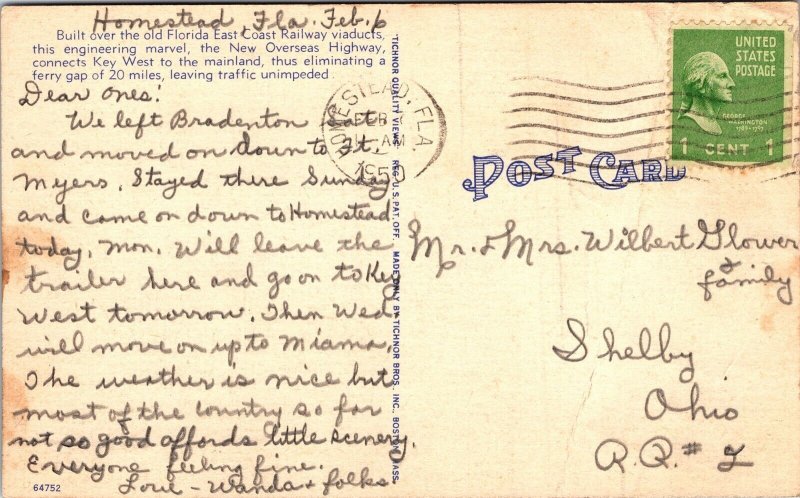 Homestead, Fla. Feb. 6
Built over the old Florida East Coast Railway viaducts,
this engineering marvel, the New Overseas Highway,
connects Key West to the mainland, thus eliminating a
ferry gap of 20 miles, leaving traffic unimpeded.
Dear Ones:
We left Bradenton Sat.
and moved on down to Ft.
Myers. Stayed there Sunday
and came on down to Homestead
today, Mon. Will leave the
trailer here and go on to Key
West tomorrow. Then Wed
will move on up to Miama.
The weather is nice but
most of the country so far
not so good affords little scenery.
Everyone feeling fine.
Love - Wanda + folks
64752
TICHNOR QUALITY VIEWS REG. U.S. PAT. OFF. MADE ONLY BY TICHNOR BROS. INC., BOSTON, MASS.
HOMESTEAD, FLA.
FEB
AM
1950
UNITED
STATES
POSTAGE
GEORGE
WASHINGTON
1789-1797
1 CENT 1
POST CARD
Mr. & Mrs. Wilbert Glower
& family
Shelby
Ohio
R.R. # 2